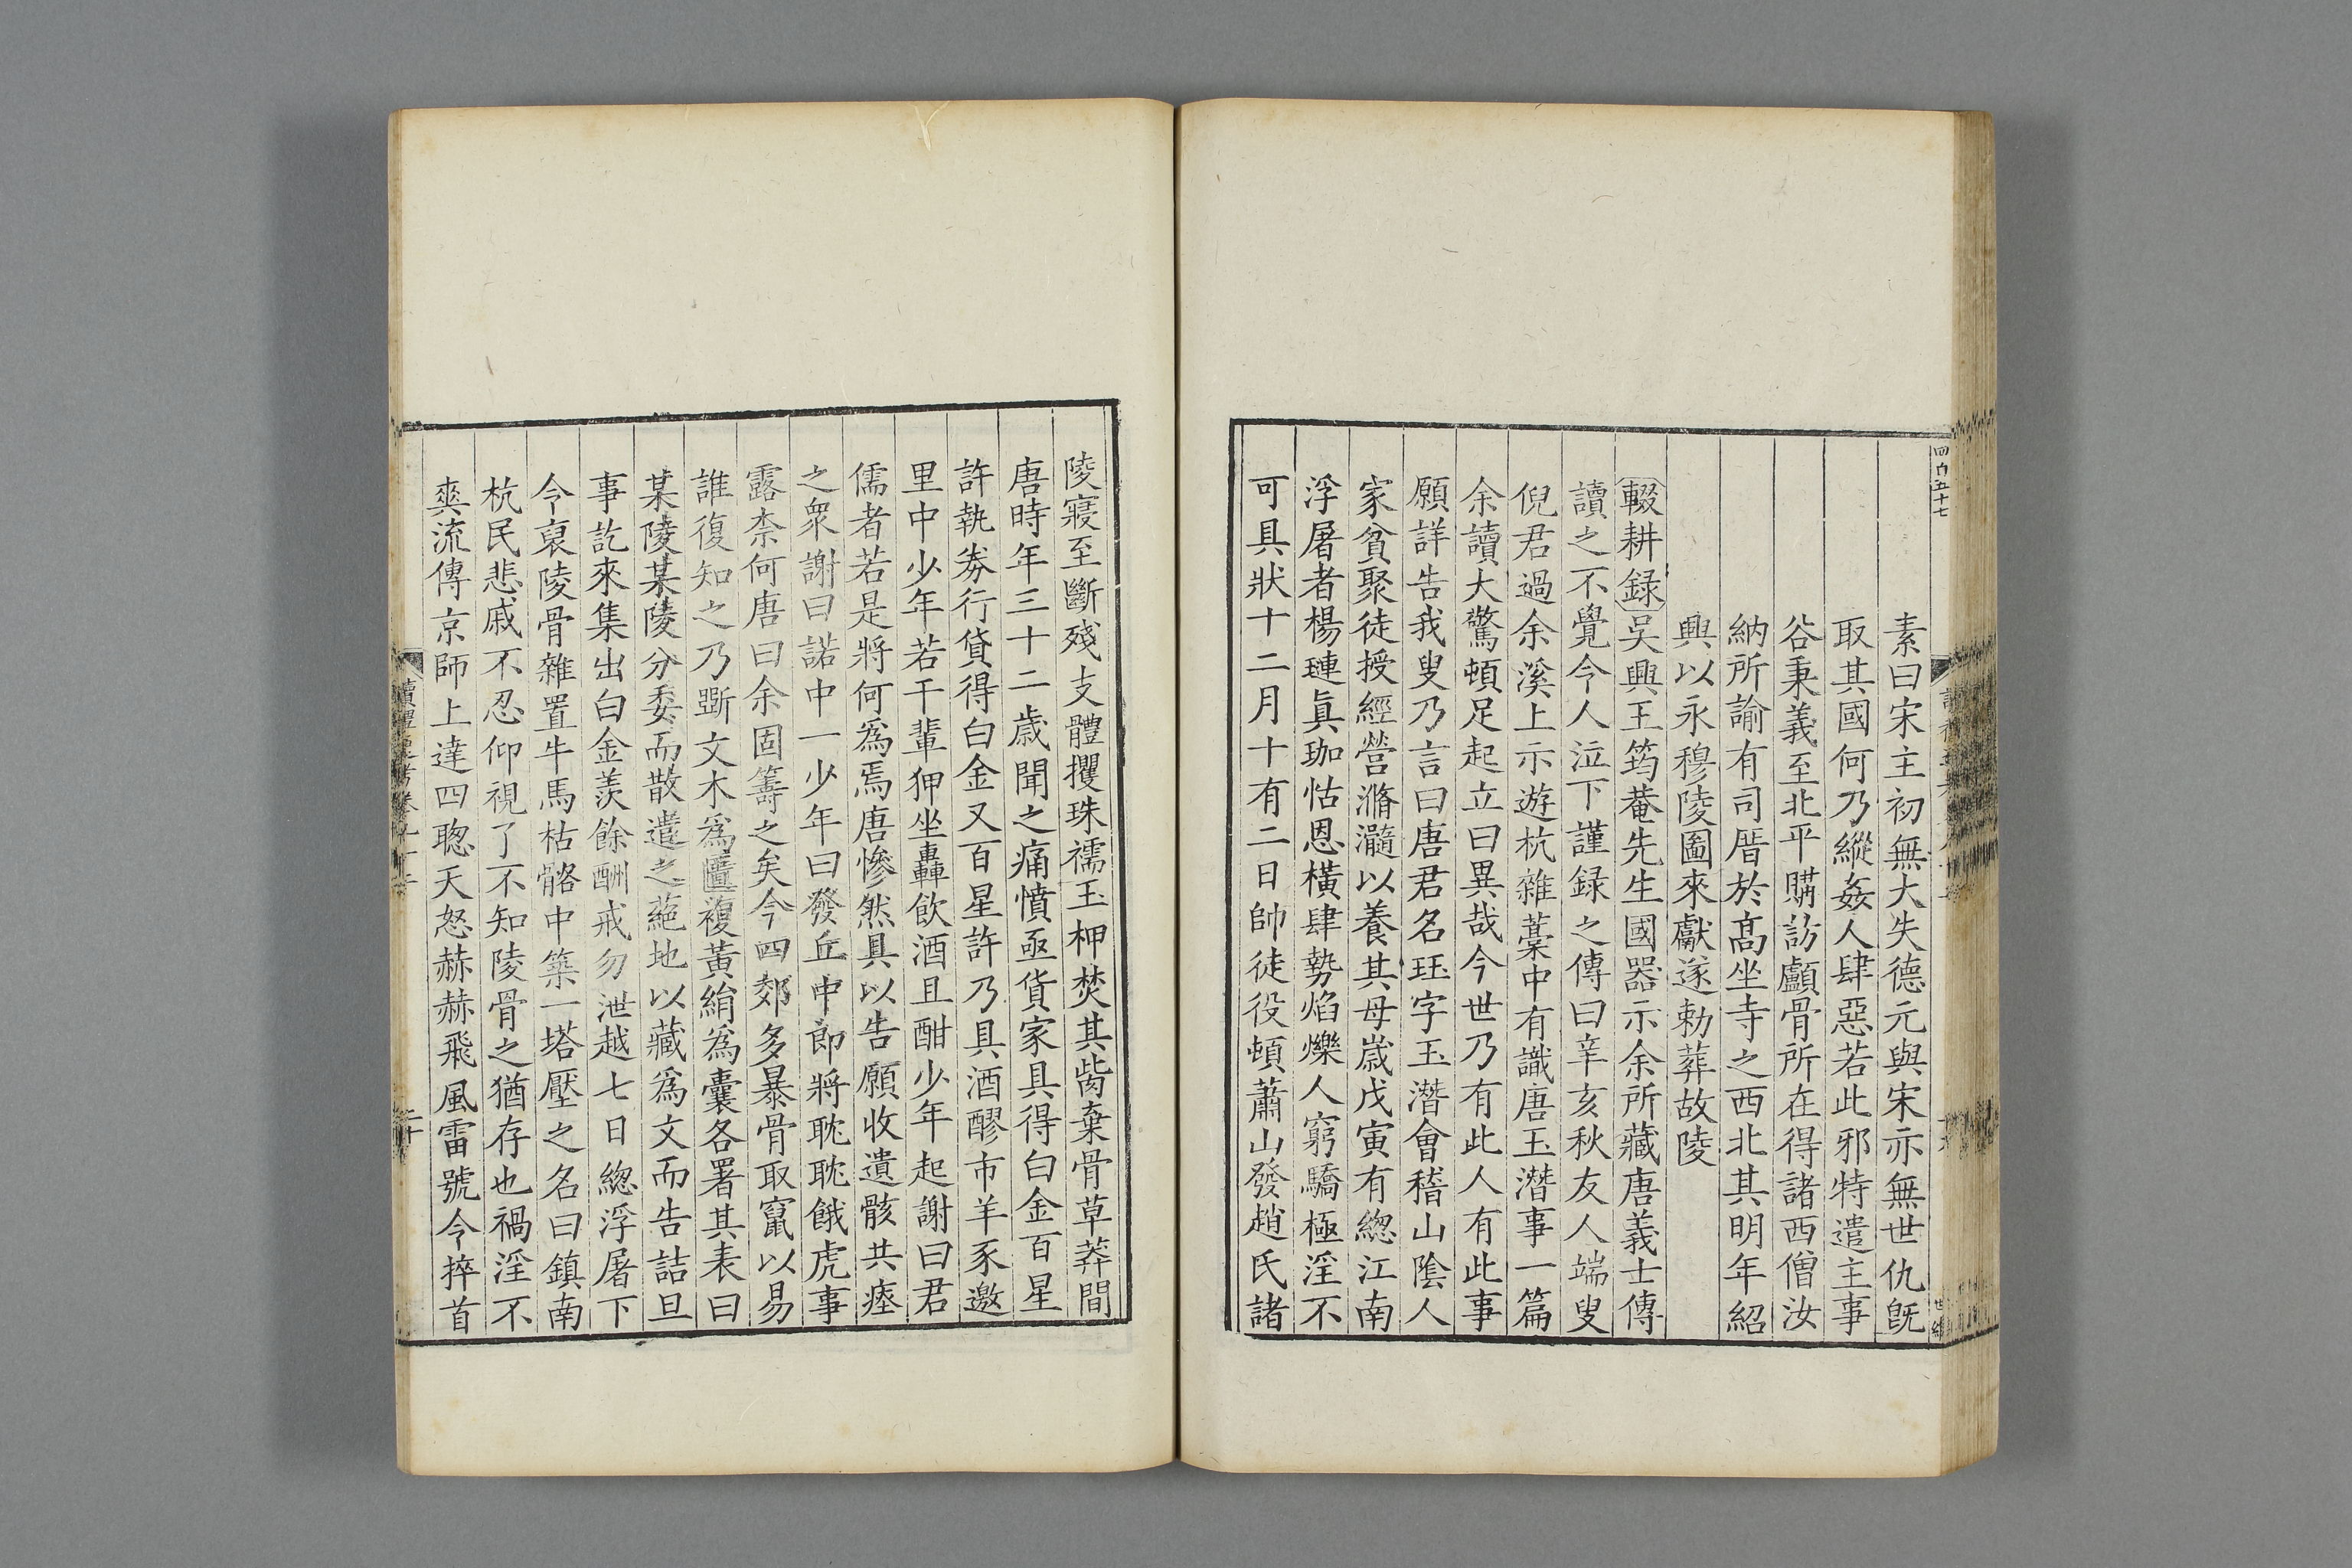 四百五十七
素曰宋主初無大失德元與宋亦無世仇旣
取其國何乃縱姦人肆惡若此邪特遣主事
谷秉義至北平購訪顱骨所在得諸西僧汝
納所諭有司厝於髙坐寺之西北其明年紹
興以永穆陵圖來獻遂勅葬故陵
輟耕録吳興王筠菴先生國器示余所藏唐義士傳
讀之不覺令人泣下謹録之傳曰辛亥秋友人端叟
倪君過余溪上示遊杭雜藁中有識唐玉潛事一篇
余讀大驚頓足起立曰異哉今世乃有此人有此事
願詳告我叟乃言曰唐君名珏字玉潛會稽山隂人
家貧聚徒授經營滫瀡以養其母嵗戊寅有緫江南
浮屠者楊璉眞珈怙恩橫肆勢焰爍人窮驕極淫不
可具狀十二月十有二日帥徒役頓蕭山發趙氏諸
陵寢至斷殘支體攫珠襦玉柙焚其胔棄骨草莽間
唐時年三十二歳聞之痛憤亟貨家具得白金百星
許執劵行貸得白金又百星許乃具酒醪市羊豕邀
里中少年若干輩狎坐轟飲酒且酣少年起謝曰君
儒者若是將何爲焉唐慘然具以告願收遺骸共瘞
之衆謝曰諾中一少年曰發丘中郎將眈眈餓虎事
露柰何唐曰余固籌之矣今四郊多暴骨取竄以易
誰復知之乃斲文木爲匵複黃絹爲囊各署其表曰
某陵某陵分委而散遣之蕝地以藏爲文而告詰旦
事訖來集出白金羨餘酬戒勿泄越七日緫浮屠下
令裒陵骨雜置牛馬枯骼中築一塔壓之名曰鎮南
杭民悲戚不忍仰視了不知陵骨之猶存也禍淫不
爽流傳京師上達四聰天怒赫赫飛風雷號令捽首
讀禮通考卷九十二
二十